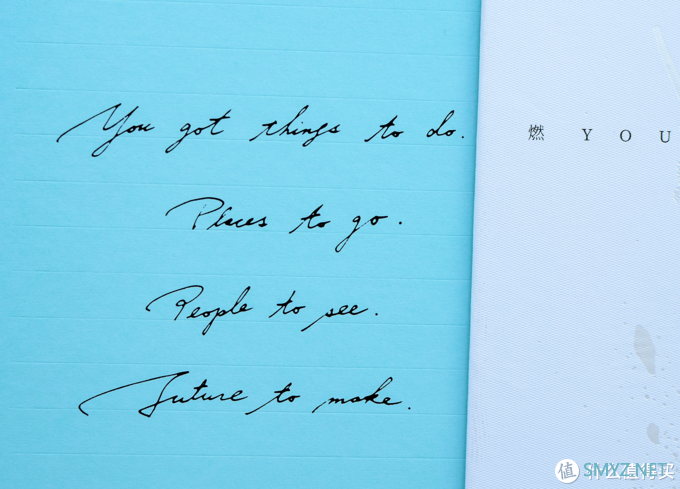 You got things to do.
Places to go.
People to see.
Future to make.
燃 YOU
值 什么值得买
SMYZ.NET